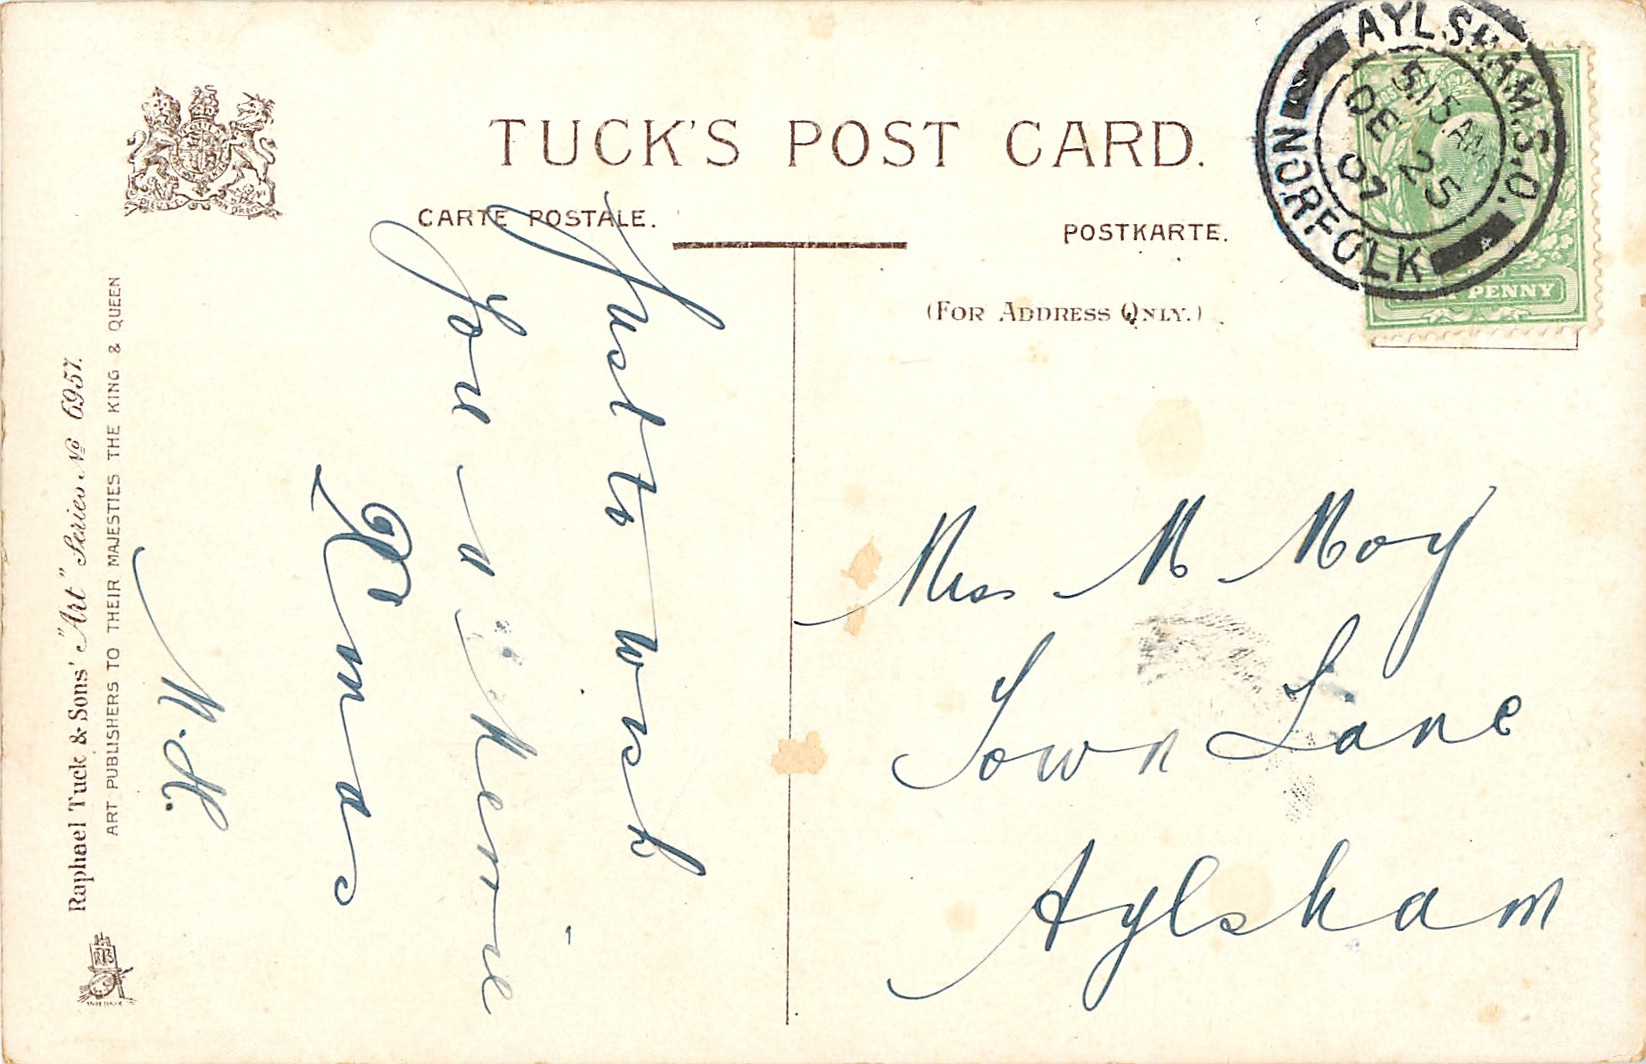 TUCK'S POST CARD.
CARTE POSTALE.
POSTKARTE.
(FOR ADDRESS ONLY.)
AYLSHAM.S.O.
NORFOLK
5 15 AM
DE 25
07
PENNY
DIEU ET MON DROIT
Raphael Tuck & Sons' "Art" Series No 6957.
ART PUBLISHERS TO THEIR MAJESTIES THE KING & QUEEN
Just to wish
you a Merrie
Xmas
M. H.
Miss M Moy
Town Lane
Aylsham